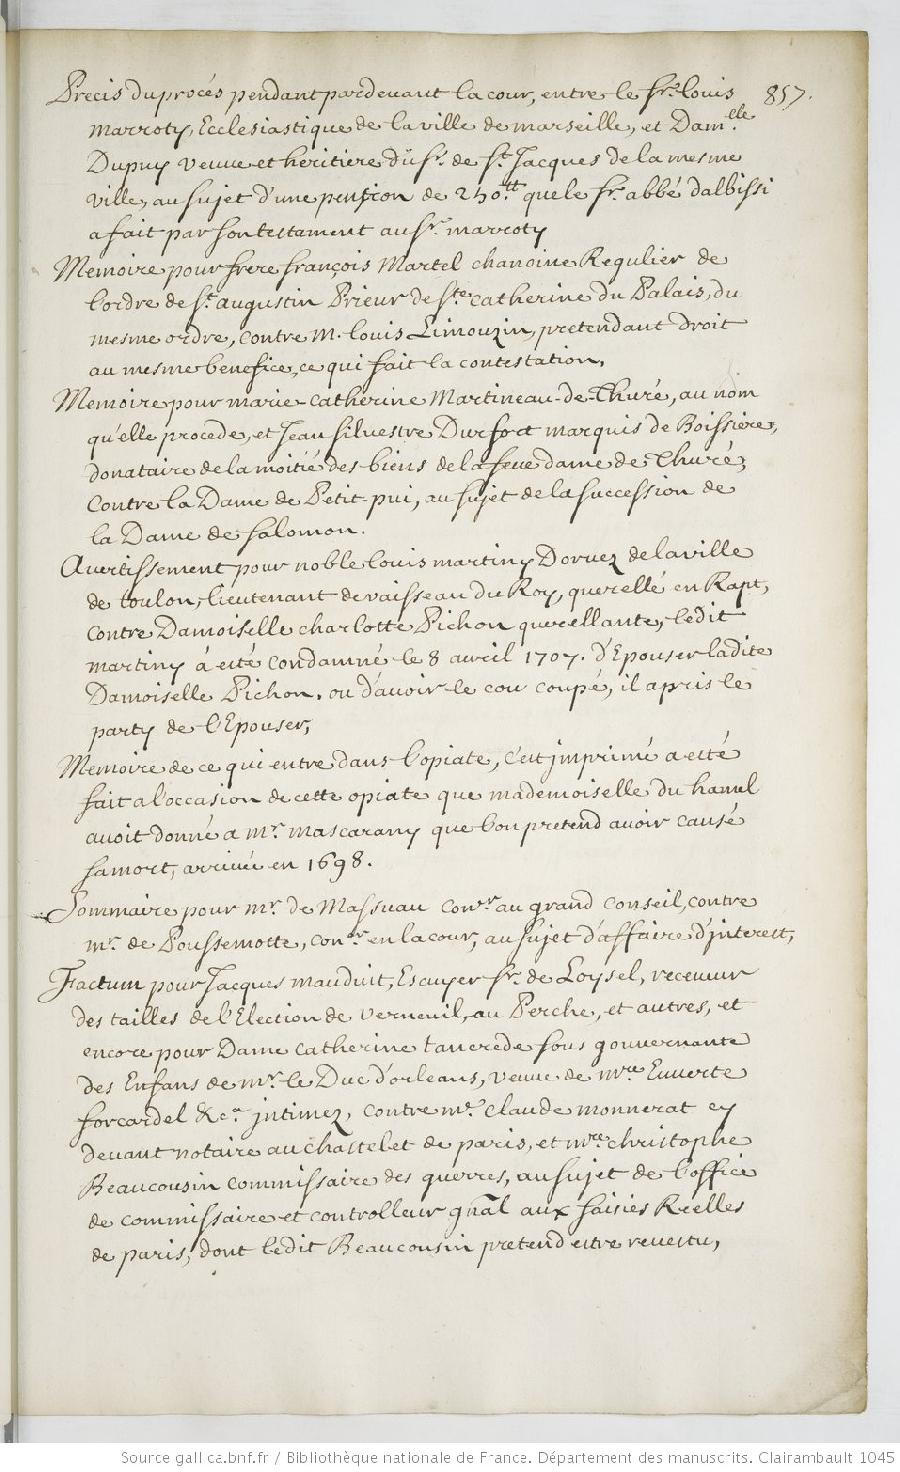 Precis du procés pendant pardevant la cour, entre le Sr. louis 857.
marroty, Ecclesiastique de la ville de marseille, et Dam.elle
Dupuy veuve et heritiere du Sr. de St. Jacques de la mesme
ville, au sujet d'une pension de 250.tt que le Sr. abbé dalbissi
a fait par son testament au Sr. marroty
Memoire pour frere françois Martel chanoine Regulier de
l'ordre de St. augustin Prieur de Ste. catherine du Palais, du
mesme ordre, contre M. louis Limouzin, pretendant droit
au mesme benefice, ce qui fait la contestation.
Memoire pour marie-catherine Martineau-de-Thuré, au nom
qu'elle procede, et Jean silvestre Durfort marquis de Boissiere,
donataire de la moitié des biens de la feue dame de Thuré;
contre la Dame de Petit-pui, au sujet de la succession de
la Dame de salomon.
Avertissement pour noble louis martiny Dorvez de la ville
de toulon, lieutenant de vaisseau du Roy, querellé en Rapt,
contre Damoiselle charlotte Pichon querellante, ledit
martiny á esté condamné le 8 avril 1707. d'Epouser ladite
Damoiselle Pichon, ou d'avoir le cou coupé, il a pris le
party de l'Epouser,
Memoire de ce qui entre dans l'opiate, c'est jmprimé a esté
fait a l'occasion de cette opiate que mademoiselle du hamel
avoit donné a Mr. mascarany que l'on pretend avoir causé
sa mort, arrivée en 1698.
Sommaire pour Mr. de Massuau con.er au grand Conseil, contre
Mr. de Poussemotte, con.er en la cour, au sujet d'affaire d'jnterest,
Factum pour Jacques mauduit, Escuyer Sr. de Loysel, receveur
des tailles de l'Election de verneuil, au Perche, et autres, et
encore pour Dame catherine tancrede sous gouvernante
des Enfans de Mr. le Duc d'orleans, veuve de Mre Euverte
forcardel &ca. jntimez, contre Me. Claude monnerat cy
devant notaire au chastelet de paris, et Mre. christophe
Beaucousin commissaire des guerres, au sujet de l'office
de commissaire et controlleur gnãl aux saisies Reelles
de paris, dont ledit Beaucousin pretend estre revestu,
Source gallica.bnf.fr / Bibliothèque nationale de France. Département des manuscrits. Clairambault 1045